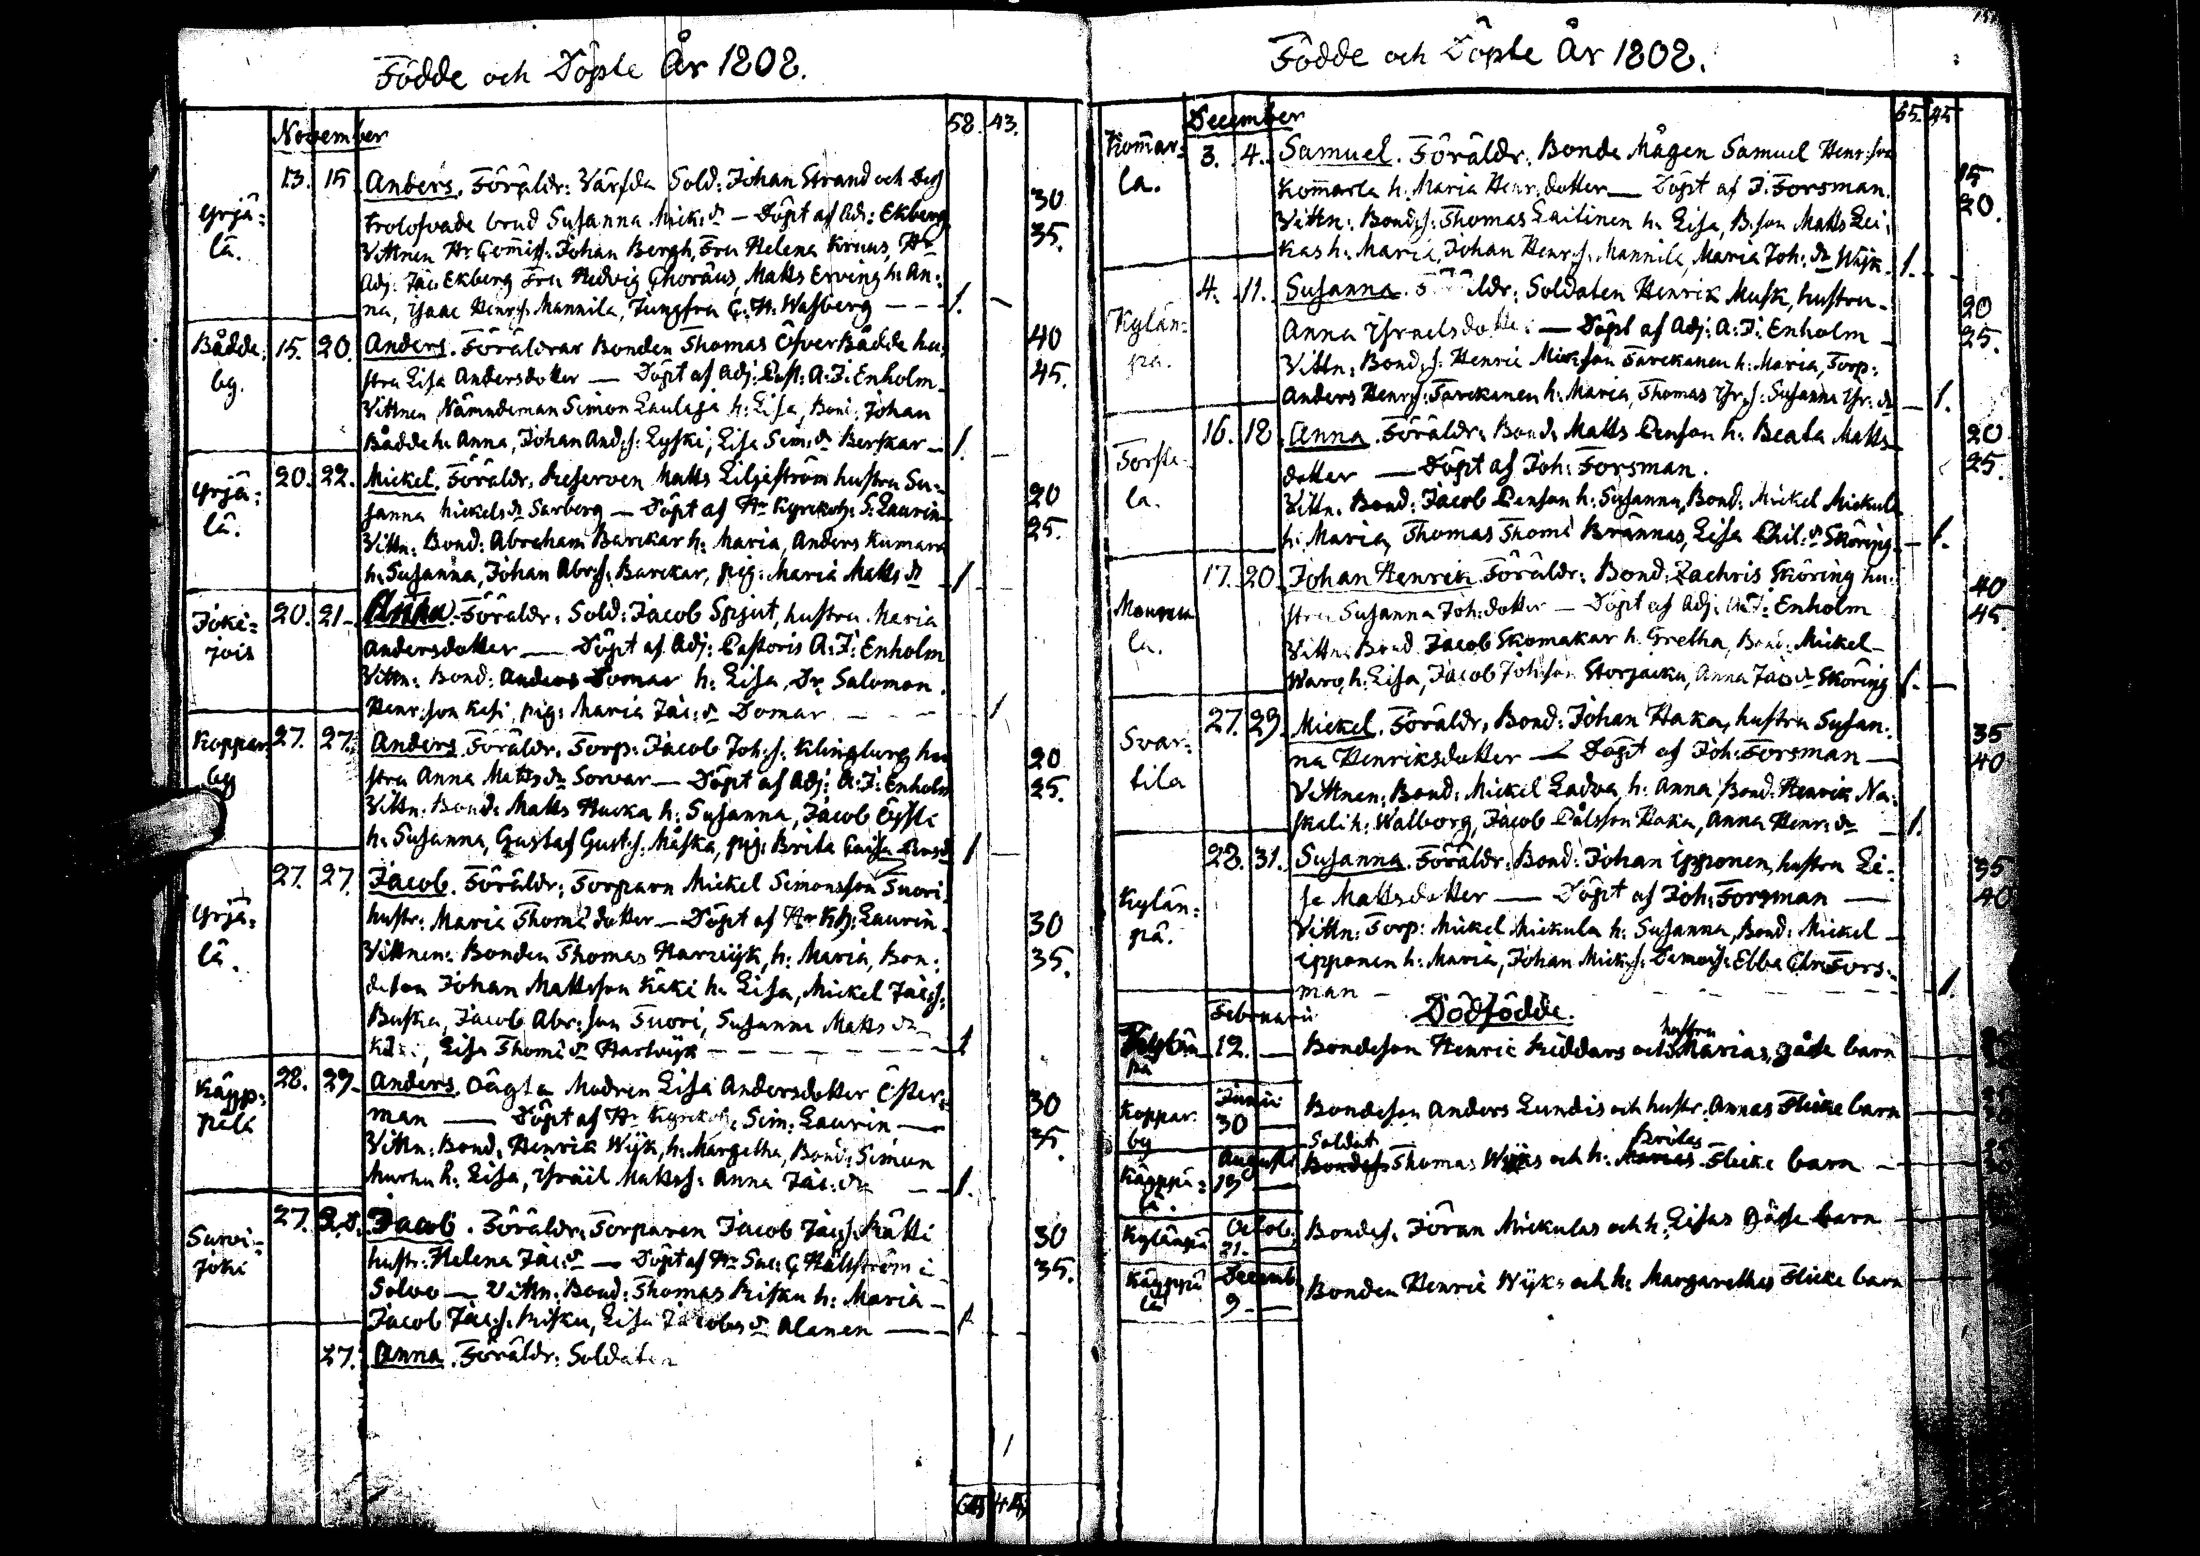 Födde och Döpte År 1808.
November
58. 43.
Yrjä:
lä.
13. 15 Anders. Föräldr: Värfda Sold: Johan Strand och Des
trolofvade brud Susanna Mick: dr — Döpt af Adj: Ekberg
30
35.
Vittnen Hr Commiss: Johan Bergh, Fru Helena Krius, Hr
Adj: Jac: Ekberg Fru Hedvig Choræus, Matts Erving h: An:
na, Isaac Henr:s: Mannila, Jungfru C: H: Wasberg — 1.
Bådde:
by.
15. 20. Anders. Föräldrar Bonden Thomas ÖfverBådde hu:
stru Lisa Andersdotter — Döpt af Adj: Past: A: J: Enholm
40
45.
Vittnen Nämndeman Simon Laulaja h: Lisa, Bond: Johan
Bådde h: Anna, Johan And:s: Lyski, Lisa Sim: dr Berskar — 1.
Yrjä:
lä.
20. 22. Mickel. Föräldr: Reserven Matts Liljeström hustru Su:
sanna Mickels dr Sarberg — Döpt af Hr Kyrkoh: S: Laurin
20
25.
Vittn: Bond: Abraham Barckar h: Maria, Anders Kumara
h: Susanna, Johan Abr:s: Barckar, pig: Maria Matts dr — 1
Joki=
jois
20. 21. Anna. Föräldr: Sold: Jacob Spjut, hustru Maria
Andersdotter — Döpt af Adj: Pastoris A: J: Enholm
Vittn: Bond: Anders Domar h: Lisa, Dr: Salomon
Henr:son Kesi, pig: Maria Jac: dr Domar — 1
Koppar
by
27. 27. Anders. Föräldr: Torp: Jacob Joh:s: Klingburg hu
stru Anna Matts dr Sorvar — Döpt af Adj: A: J: Enholm
20
25.
Vittn: Bond: Matts Hacka h: Susanna, Jacob
h: Susanna, Gustaf Gust:s: Måska, pig: Brita Caisa 1
Yrjä:
lä.
27. 27. Jacob. Föräldr: Torparn Mickel Simonsson Tuori
hustr: Maria Thomæ dotter — Döpt af Hr Kh: Laurin
30
35.
Vittnen: Bonden Thomas Hartvijk, h: Maria, Bon:
deson Johan Mattsson Käki h: Lisa, Mickel Jac:s:
Buska, Jacob Abr:son Tuori, Susanna Matts dr
Käki, Lisa Thomæ dr Hartvijk — 1
Käpp:
pälä
28. 29. Anders. Oägta Modren Lisa Andersdotter Öster:
man — Döpt af Hr Kyrkoh: Sim: Laurin —
30
35.
Vittn: Bond: Henrik Wijk, h: Margetha, Bond: Simon
h: Lisa, Israël Mattss: Anna Jac: dr — 1.
Survi=
joki
27. Jacob. Föräldr: Torparen Jacob Jac:s: Rätti
hustr: Helena Jac: dr — Döpt af Hr Sac: C Hällström i
30
35.
Solvo — Vittn: Bond: Thomas Risku h: Maria —
Jacob Jac:s: Risku, Lisa Jacobs dr Alanen — 1
27. Anna. Föräldr: Soldaten
1
65 45
Födde och Döpte År 1808.
December
65. 45
Kom̄ar:
la.
3. 4. Samuel. Föräldr: Bonde Mågen Samuel Henr:son
Kom̄arla h: Maria Henr: dotter — Döpt af J: Forsman.
15
20.
Vittn: Bond:s: Thomas Laitinen h: Lisa, B:son Matts Lei:
kas h: Maria, Johan Henr:s: Mannila, Maria Joh: dr Wijk — 1.
Kylän:
pä.
4. 11. Susanna. Föräldr: Soldaten Henrik Musk, hustru
Anna Israelsdotter — Döpt af Adj: A: J: Enholm
20
25.
Vittn: Bond:s: Henric Mick:son Tarckanen h: Maria, Torp:
Anders Henr:s: Tarckanen h: Maria, Thomas Isr:s: Susanna Isr: dr — 1.
Torste
la.
16. 18 Anna. Föräldr: Bond: Matts Penson h: Beata Matts
dotter — Döpt af Joh: Forsman.
20
25.
Vittn: Bond: Jacob Penson h: Susanna, Bond: Mickel Mickula
h: Maria, Thomas Thomæ Brännas, Lisa Phil: dr Sköring — 1.
la.
17. 20. Johan Henrik. Föräldr: Bond: Zachris Sköring hu:
stru Susanna Joh: dotter — Döpt af Adj: A: J: Enholm
40
45.
Vittn: Bond Jacob Skomakar h: Gretha, Bond: Mickel
Waro, h: Lisa, Jacob Joh:son Storjacku, Anna Jac: dr Sköring 1.
Svar:
tila
27. 29. Mickel. Föräldr: Bond: Johan Haka, hustru Susan:
na Henriksdotter — Döpt af Joh: Forsman —
35
40
Vittnen: Bond: Mickel Ladva, h: Anna Bond: Henrik Na:
skali h: Walborg, Jacob Pålsson Haka, Anna Henr: dr — 1.
Kylän:
pä.
28. 31. Susanna. Föräldr: Bond: Johan Ipponen, hustru Li:
sa Mattsdotter — Döpt af Joh: Forsman —
35
40
Vittn: Torp: Mickel Mickula h: Susanna, Bond: Mickel
Ipponen h: Maria, Johan Mick:s: Demois: Ebba Chr: Fors:
man — 1.
Februarii Dödfödde.
Kylän
pä
12. — Bondeson Henric Riddars och hustru Marias, gåsse barn
Koppar
by
Junii
30 — Bondeson Anders Lundis och hustr: Annas Flicke barn
Käppä:
lä.
Augusti
19 — Soldat Thomas Wijks och h: Britas Flicke barn —
Kylänpä
Octob.
21. — Bondes: Jöran Mickulas och h: Lisas gåsse barn
Käppä
lä
Decemb.
9 — Bonden Henric Wijks och h: Margarethas Flicke barn